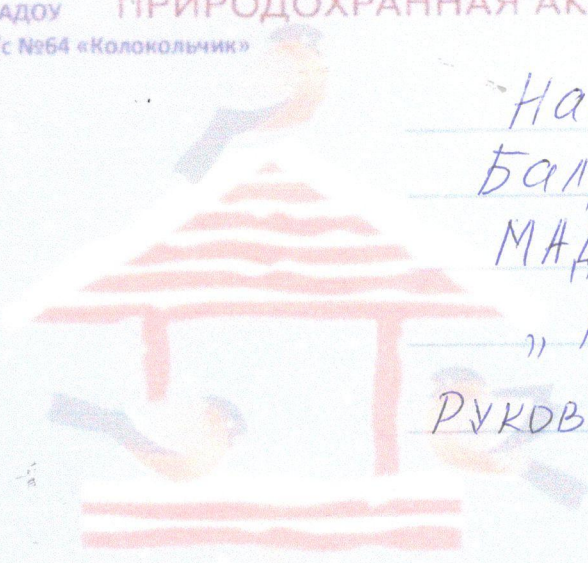 АДОУ ПРИРОДОХРАННАЯ АК
/с №64 «Колокольчик»
На
Бал
МАД
„
РУКОВ